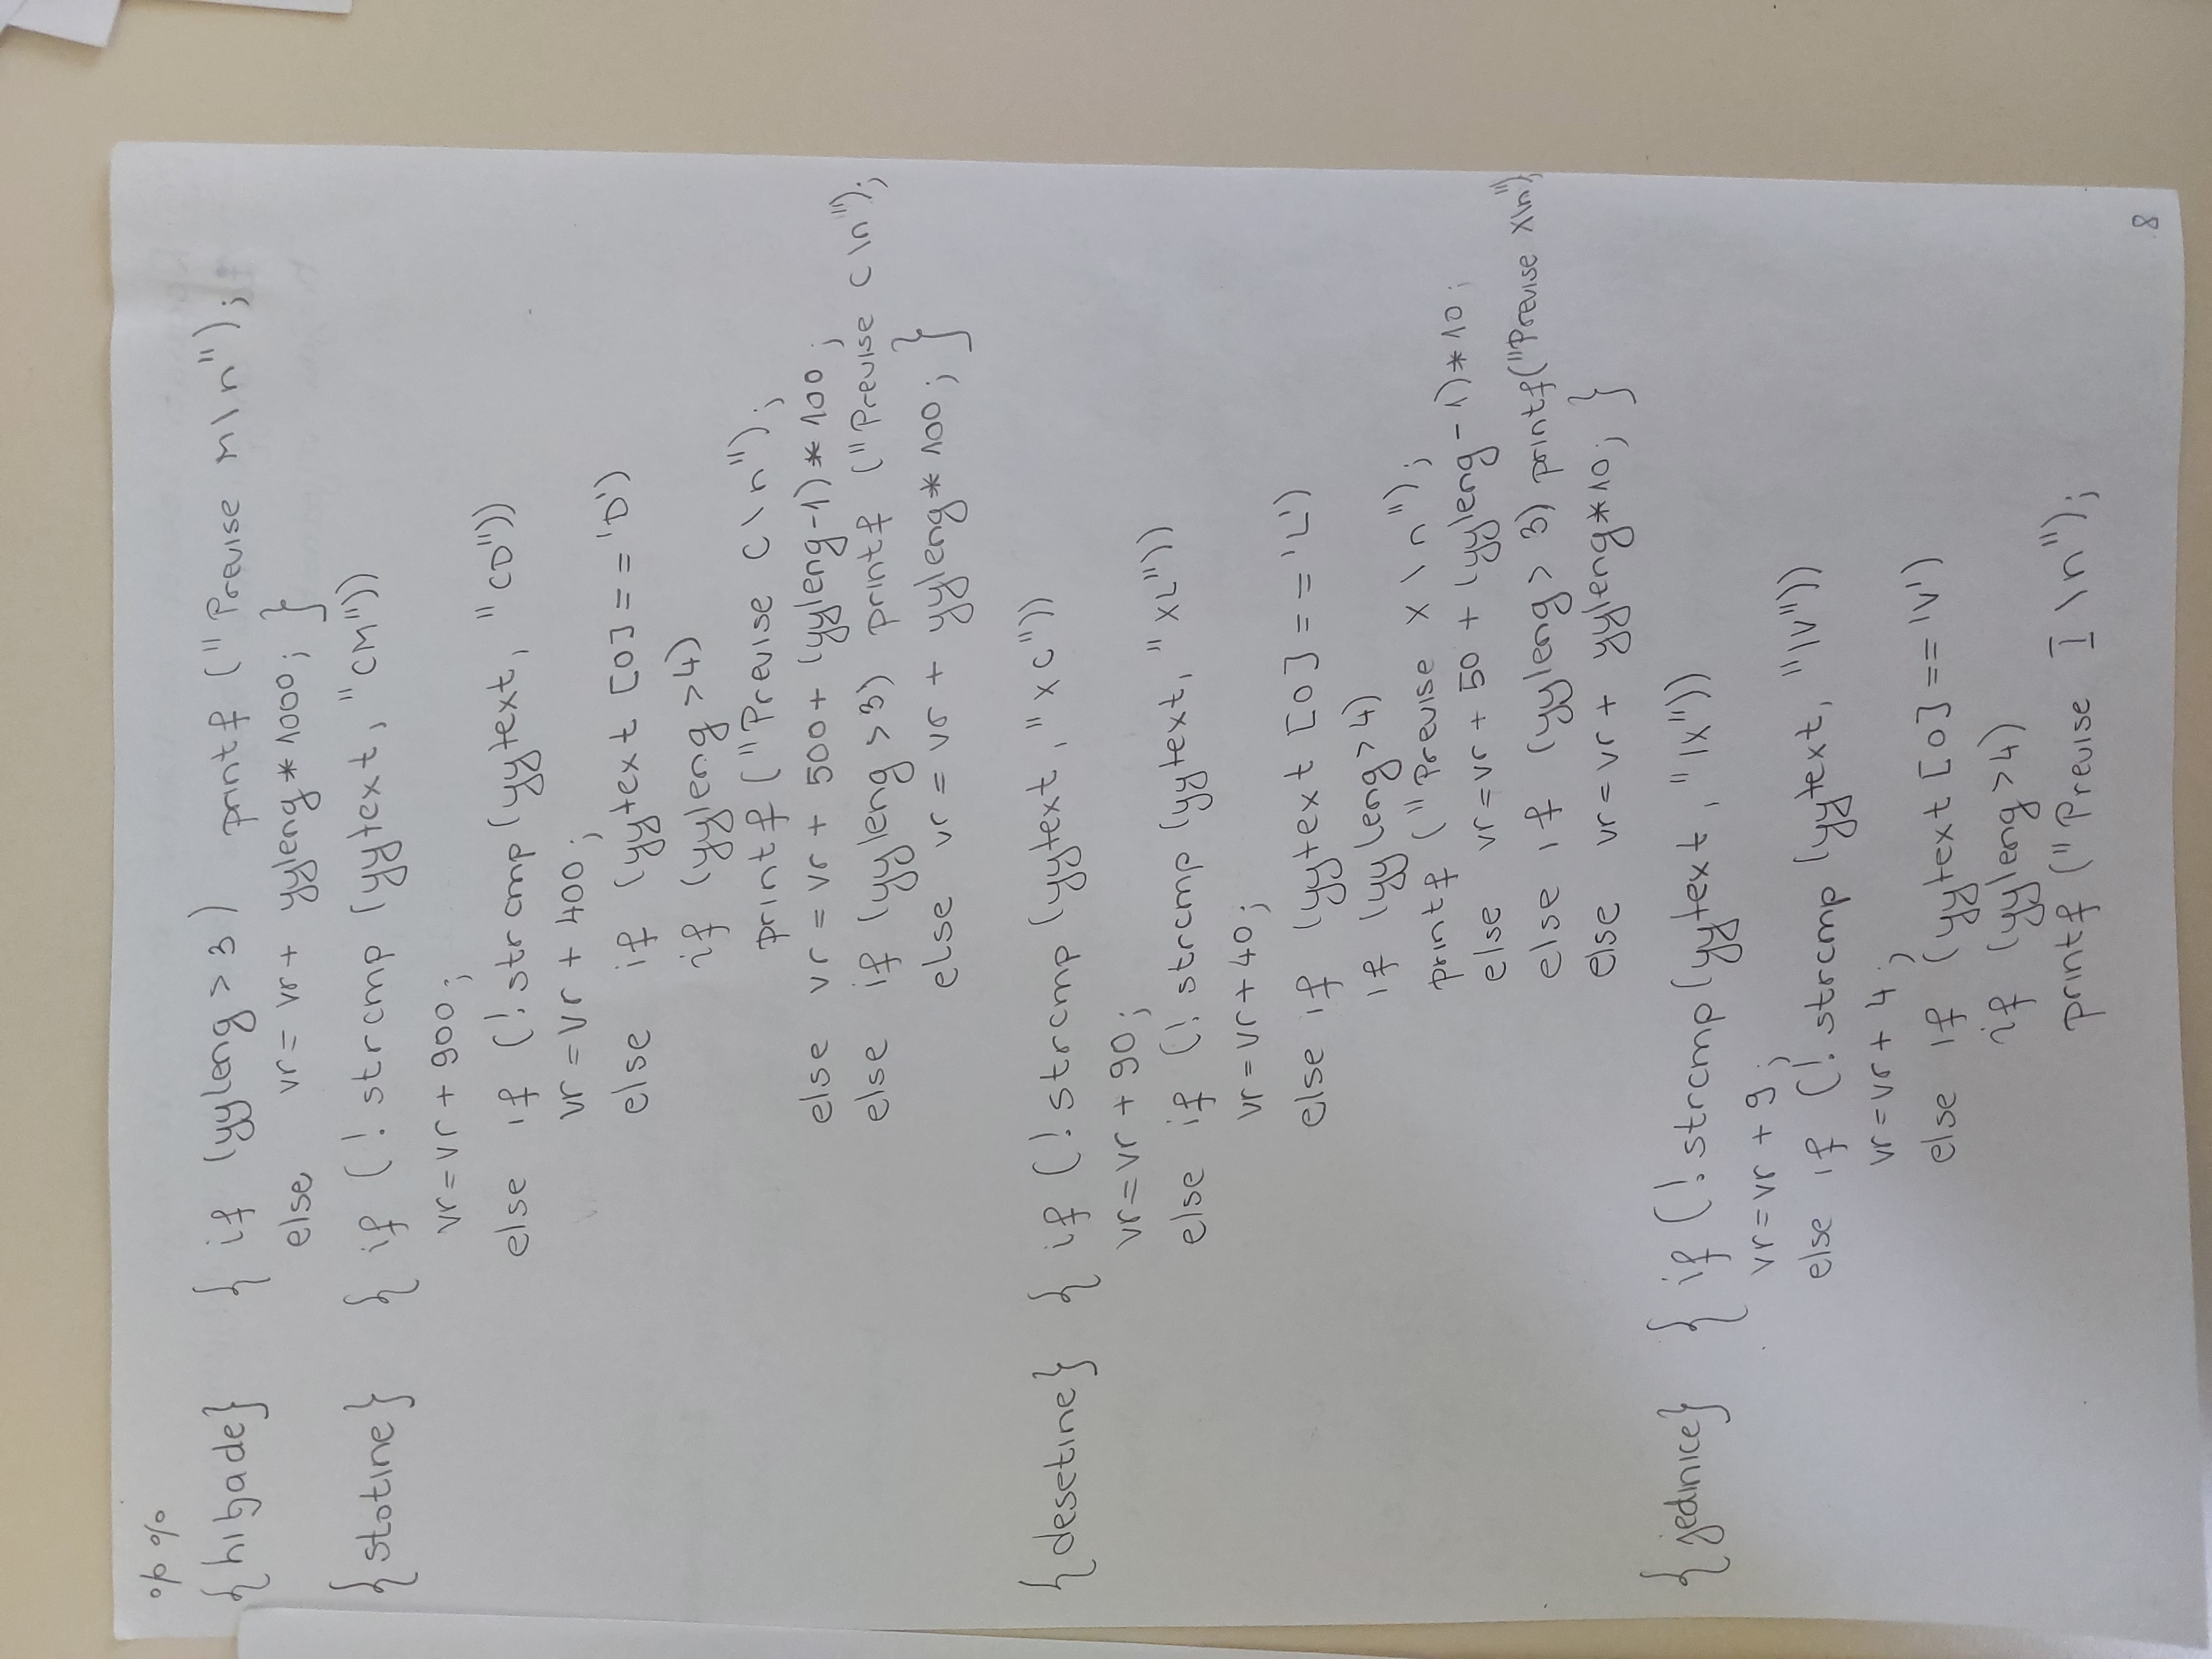 %%
{hiljade} { if (yyleng > 3) printf ("Previse M\n");
else vr = vr + yyleng * 1000; }
{stotine} { if (! strcmp (yytext, "CM"))
vr = vr + 900;
else if (! strcmp (yytext, "CD"))
vr = vr + 400;
else if (yytext [0] == 'D')
if (yyleng > 4)
printf ("Previse C\n");
else vr = vr + 500 + (yyleng-1) * 100;
else if (yyleng > 3) printf ("Previse C\n");
else vr = vr + yyleng * 100; }
{desetine} { if (! strcmp (yytext, "XC"))
vr = vr + 90;
else if (! strcmp (yytext, "XL"))
vr = vr + 40;
else if (yytext [0] == 'L')
if (yyleng > 4)
printf ("Previse X\n");
else vr = vr + 50 + (yyleng-1)*10;
else if (yyleng > 3) printf("Previse X\n");
else vr = vr + yyleng*10; }
{jedinice} { if (! strcmp (yytext, "IX"))
vr = vr + 9;
else if (! strcmp (yytext, "IV"))
vr = vr + 4;
else if (yytext [0] == 'V')
if (yyleng > 4)
printf ("Previse I\n");
8